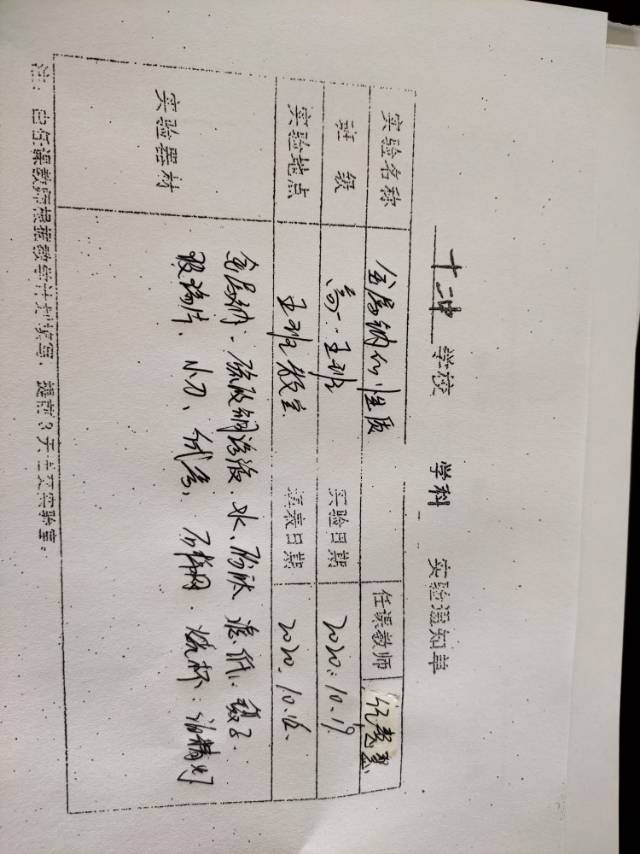 十二中 学校 学科 实验通知单
实验名称 金属钠的性质 任课教师
班级 高一.五班 实验日期 2020.10.19
实验地点 五班教室 填表日期 2020.10.
实验器材 金属钠、硫酸铜溶液、水、酚酞 滤纸、镊子、
玻璃片、小刀、石棉网、烧杯、酒精灯
注：由任课教师根据教学计划填写，提前3天上交实验室。